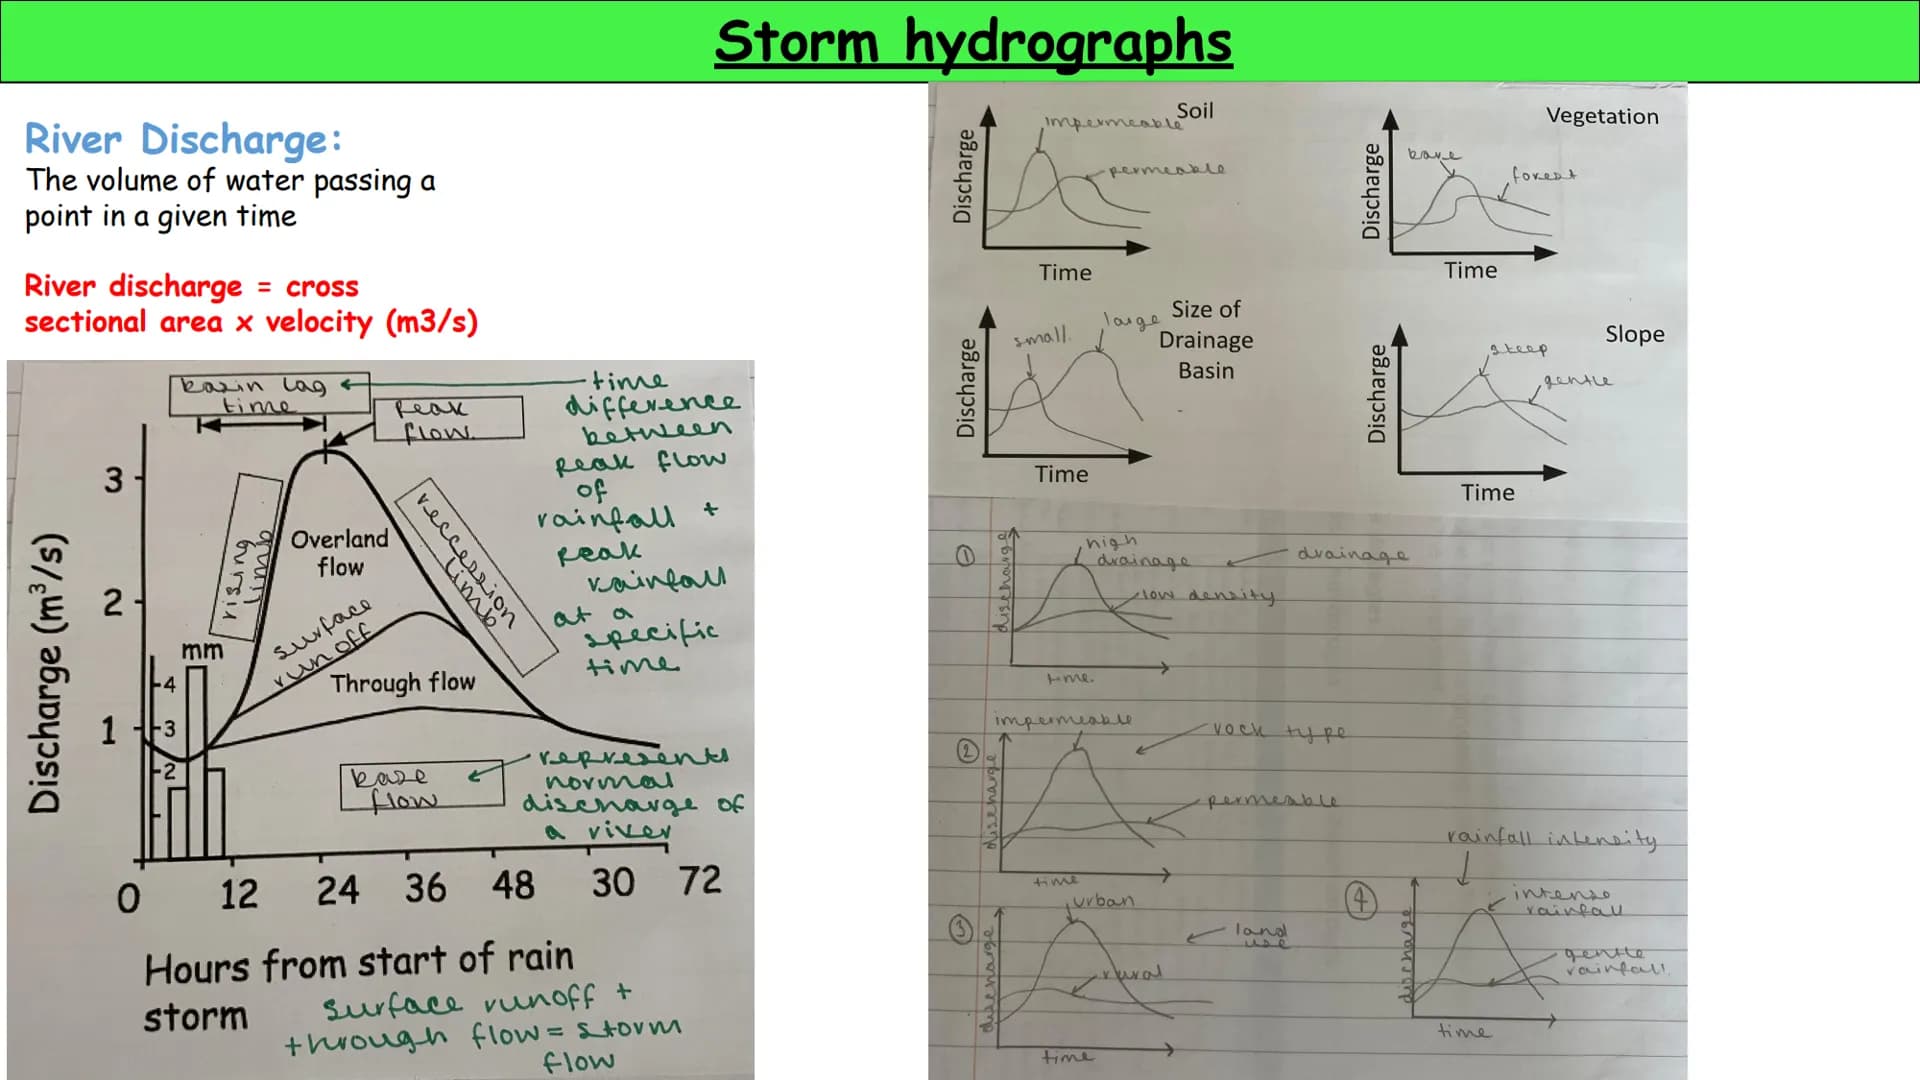 Storm hydrographs
River Discharge:
The volume of water passing a
point in a given time
River discharge = cross
sectional area x velocity (m3/s)
basin lag
time
peak
flow.
time
difference
between
peak flow
of
rainfall +
peak
rainfall
at a
specific
time
rising
limb
Overland
flow
reccession
limb
surface
runoff
Through flow
mm
4
3
2
3
2
1
Discharge (m³/s)
base
flow
represents
normal
discharge of
a river
0 12 24 36 48 30 72
Hours from start of rain
storm
surface runoff +
through flow = storm
flow
Soil
impermeable
permeable
Discharge
Time
Vegetation
bare
forest
Discharge
Time
Size of
Drainage
Basin
small.
large
Discharge
Time
Slope
steep
gentle
Discharge
Time
1
high
drainage
drainage
low density
discharge
time.
2
impermeable
rock type
permeable
discharge
time
3
urban
land
use
rural
discharge
time
4
rainfall intensity
intense
rainfall
gentle
rainfall.
discharge
time